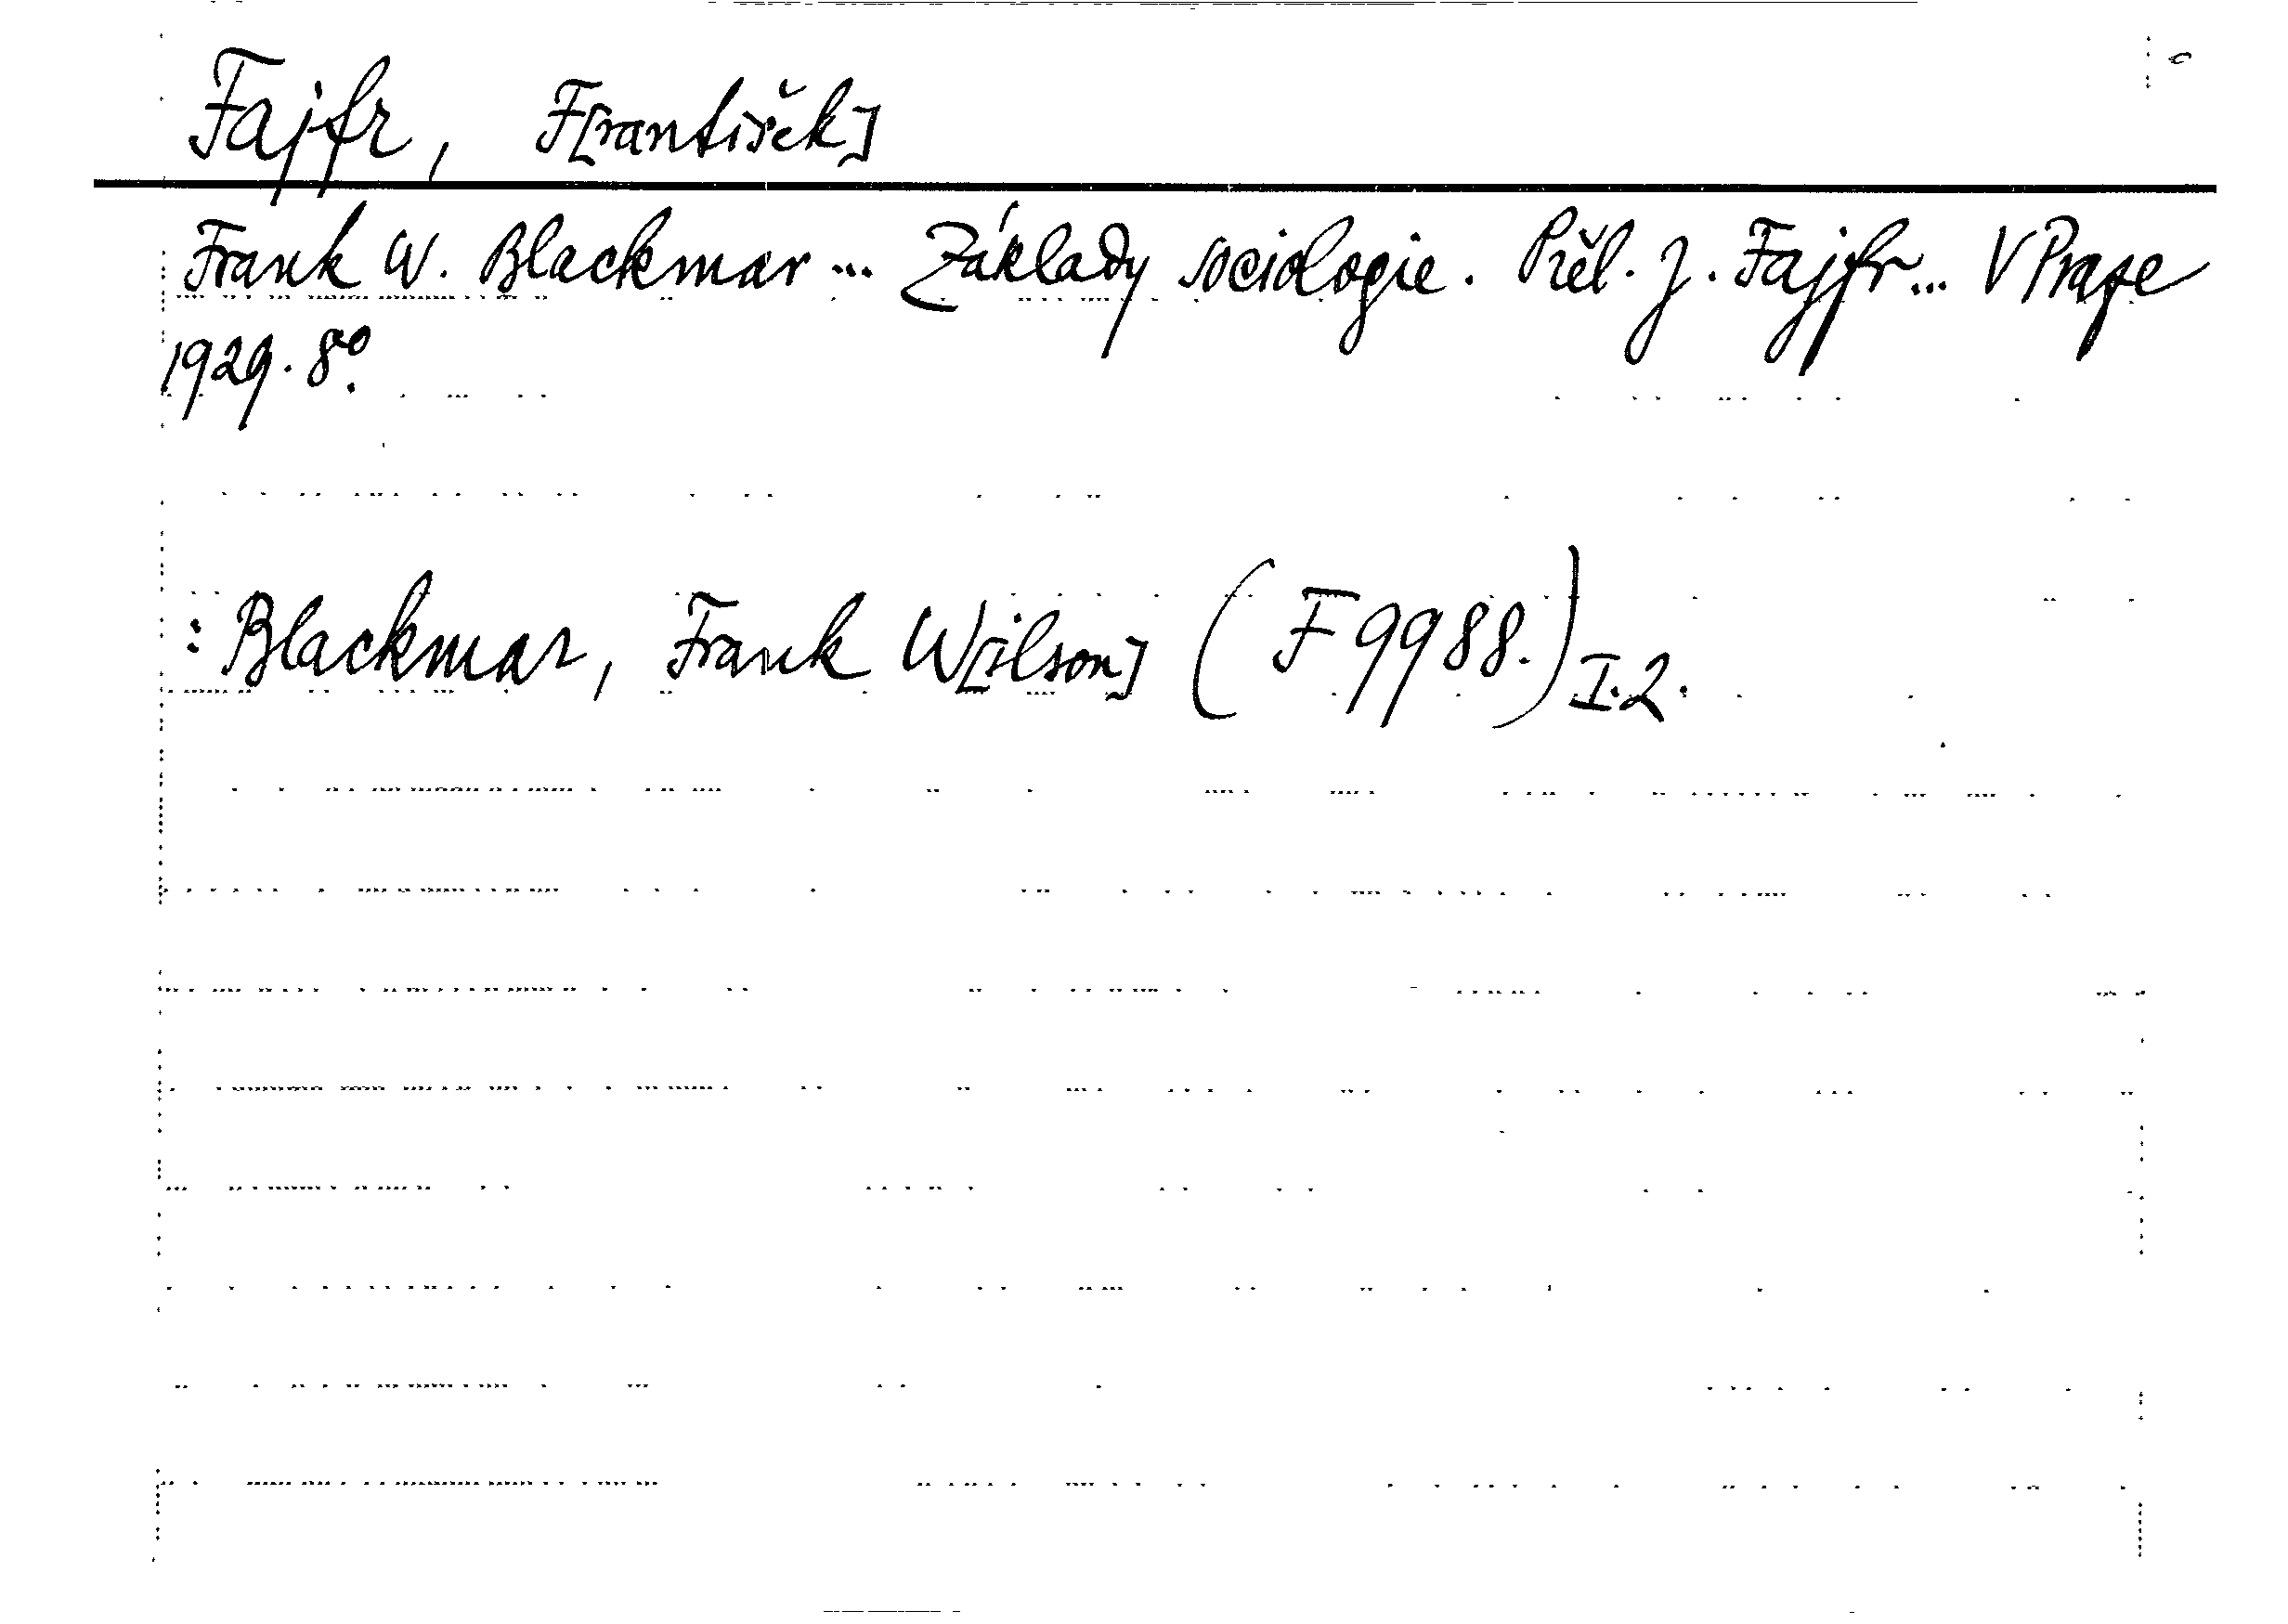 Fajfr, F[rantišek]
Frank W. Blackmar... Základy sociologie. Přel. J. Fajfr... V Praze
1929. 8º.
: Blackmar, Frank W[ilson] (F 9988.) I.2.